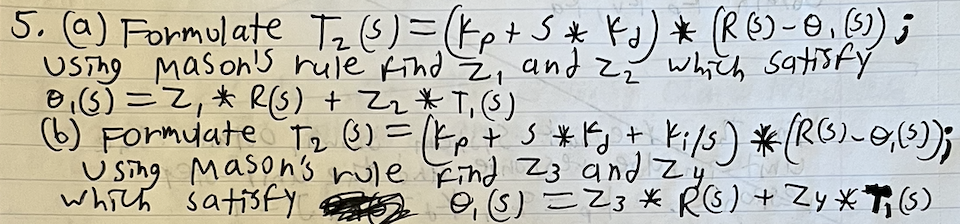 5. (a) Formulate T₂(s) = (Kp + s * Kd) * (R(s) - θ₁(s));
using Mason's rule find z₁ and z₂ which satisfy
θ₁(s) = Z₁ * R(s) + Z₂ * T₁(s)
(b) Formulate T₂ (s) = (Kp + s * Kd + Ki/s) * (R(s) - θ₁(s));
using Mason's rule find z3 and z4
which satisfy θ₁(s) = Z3 * R(s) + Z4 * T₁(s)